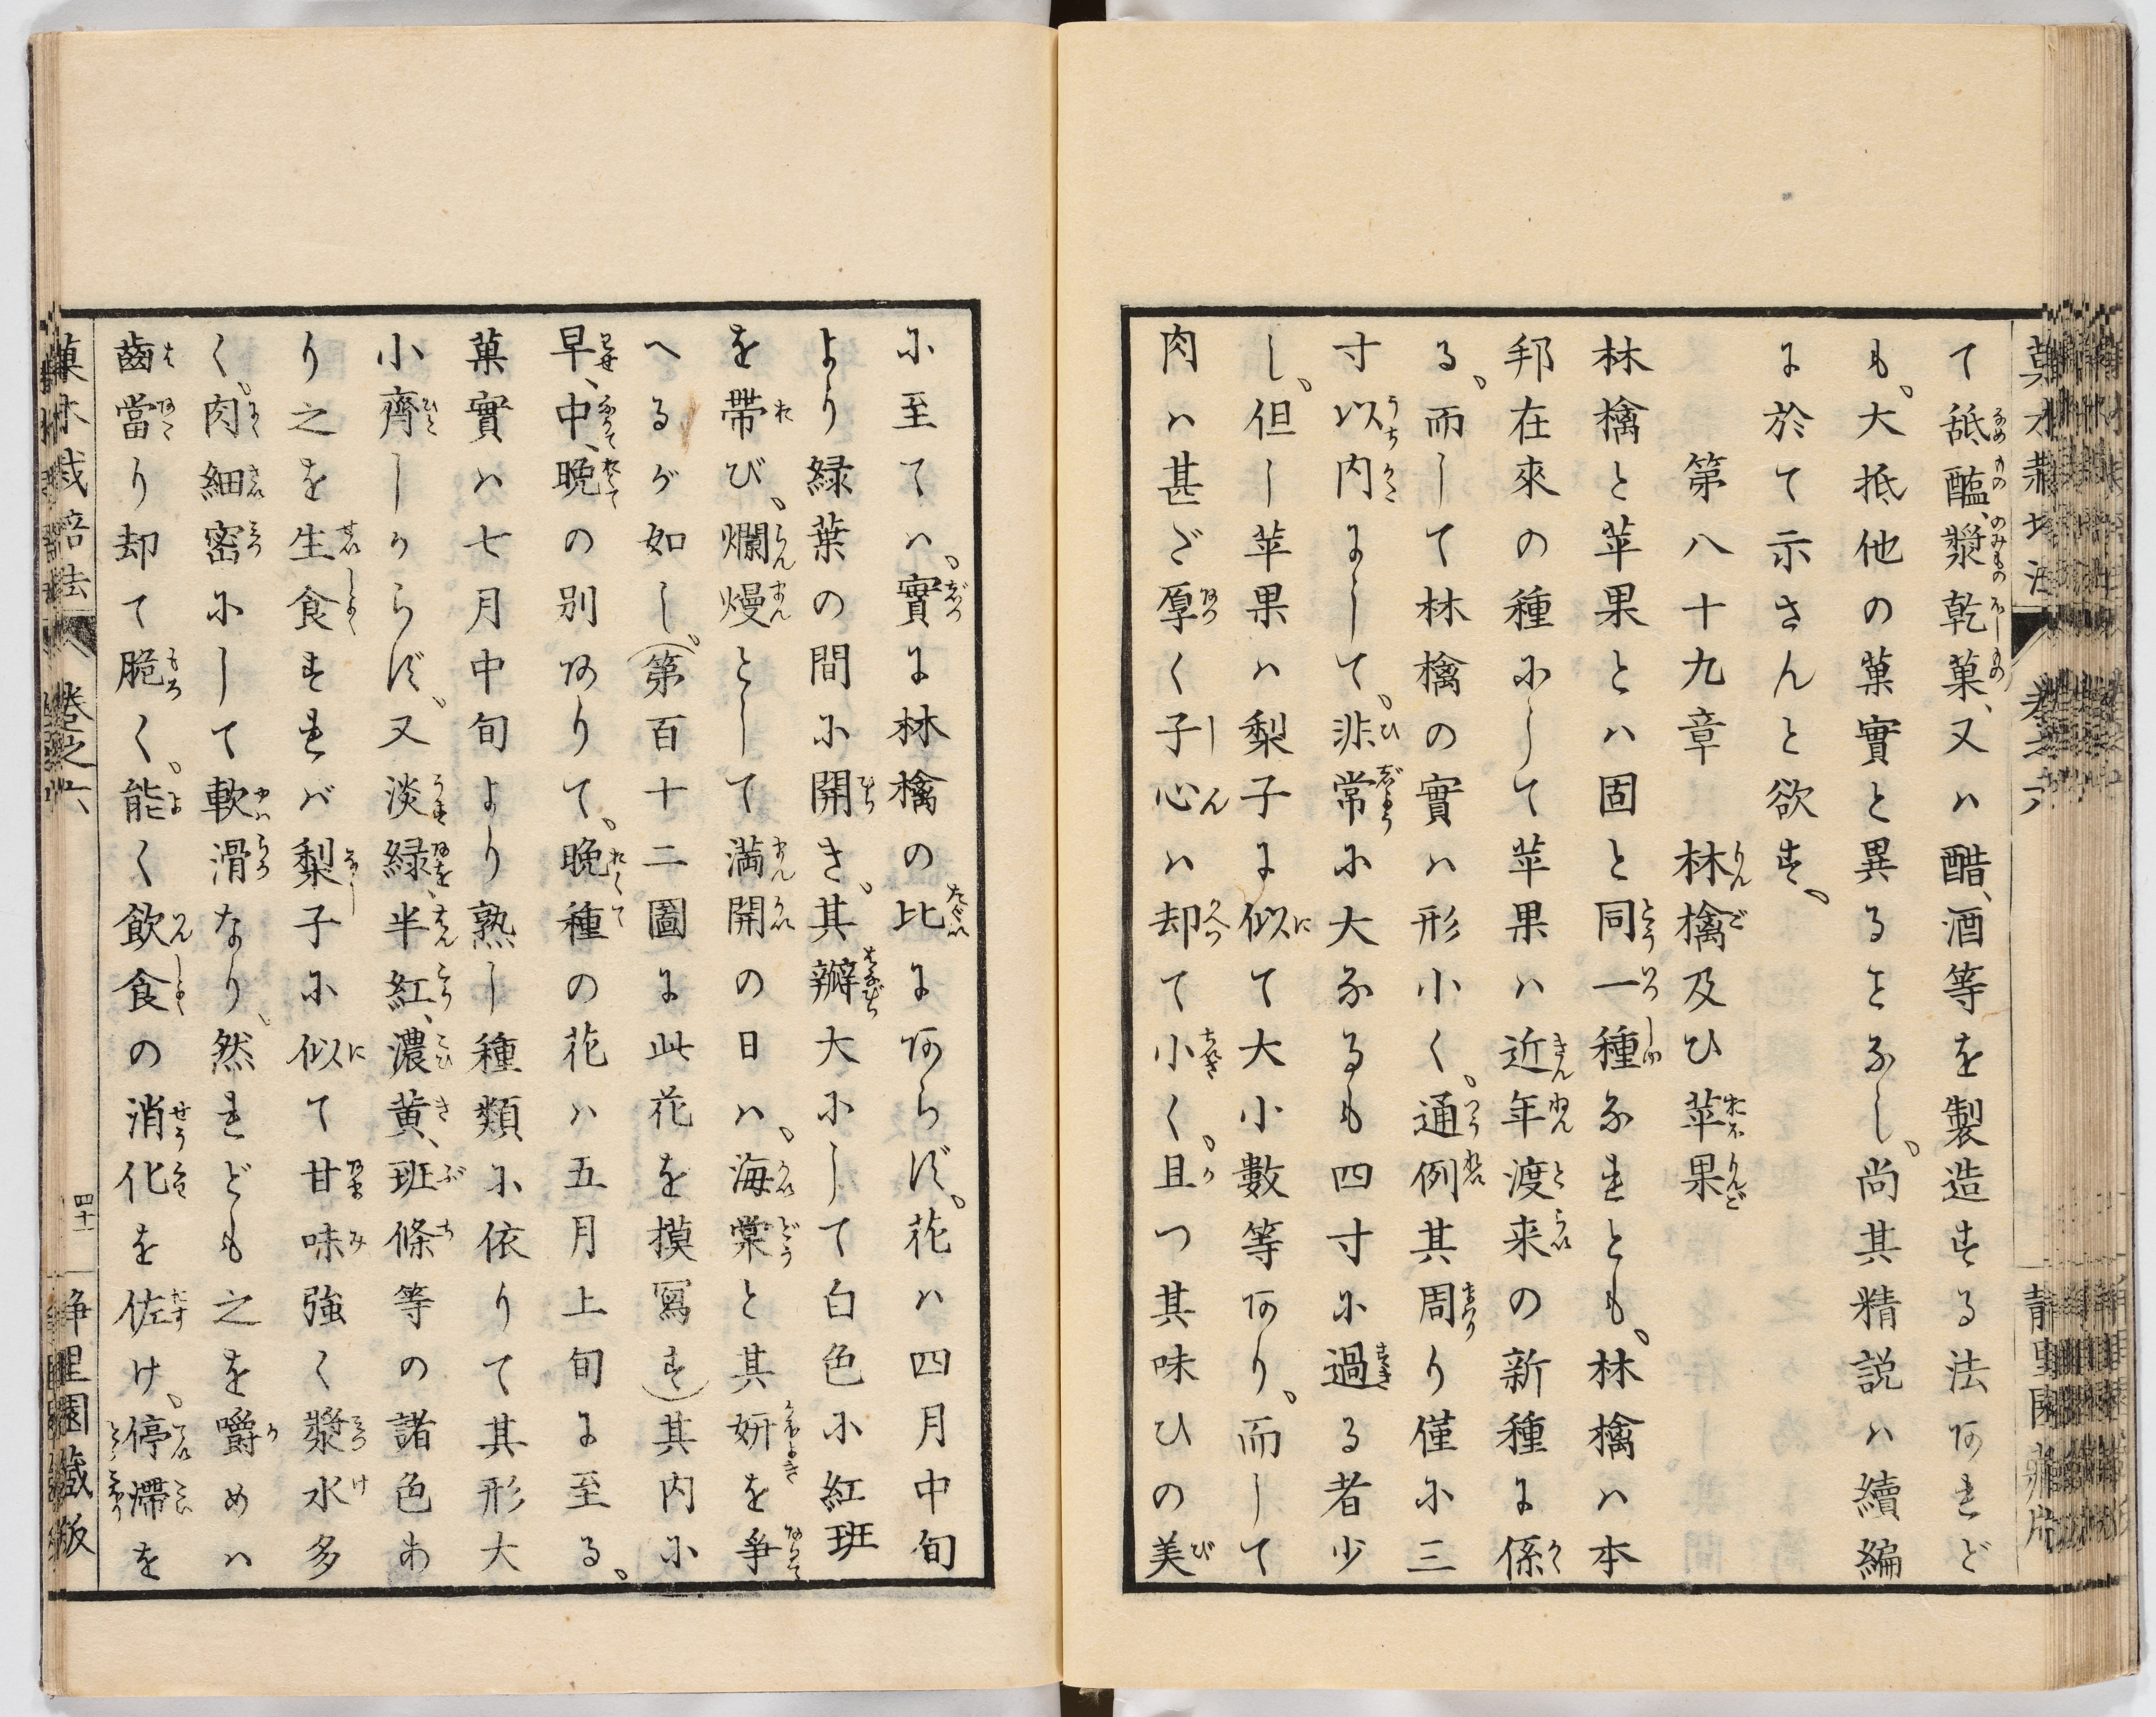 て舐醢、漿、乾菓、又ハ醋、酒等を製造する法あれど
も、大抵他の菓實と異ることなし、尚其精説ハ續編
に於て示さんと欲す、
第八十九章　林檎及ひ苹果
林檎と苹果とハ固と同一種なれとも、林檎ハ本
邦在來の種にして苹果ハ近年渡来の新種に係
る、而して林檎の實ハ形小く、通例其周り僅に三
寸以内にして、非常に大なるも四寸に過る者少
し、但し苹果ハ梨子に似て大小數等あり、而して
肉ハ甚だ厚く子心ハ却て小く、且つ其味ひの美
に至てハ、實に林檎の比にあらず、花ハ四月中旬
より緑葉の間に開き、其瓣大にして白色に紅班
を帶び、爛熳として満開の日ハ、海棠と其妍を爭
へるが如し、(第百十二圖に此花を摸寫す)其内に
早、中、晩の別ありて、晩種の花ハ五月上旬に至る、
菓實ハ七月中旬より熟し種類に依りて其形大
小齊しからず、又淡緑、半紅、濃黄、班條等の諸色あ
り之を生食すれバ梨子に似て甘味強く漿水多
く、肉細密にして軟滑なり、然れども之を嚼めハ
齒當り却て脆く、能く飲食の消化を佐け、停滯を
菓木栽培法　卷之六　四十一　静里園蔵版